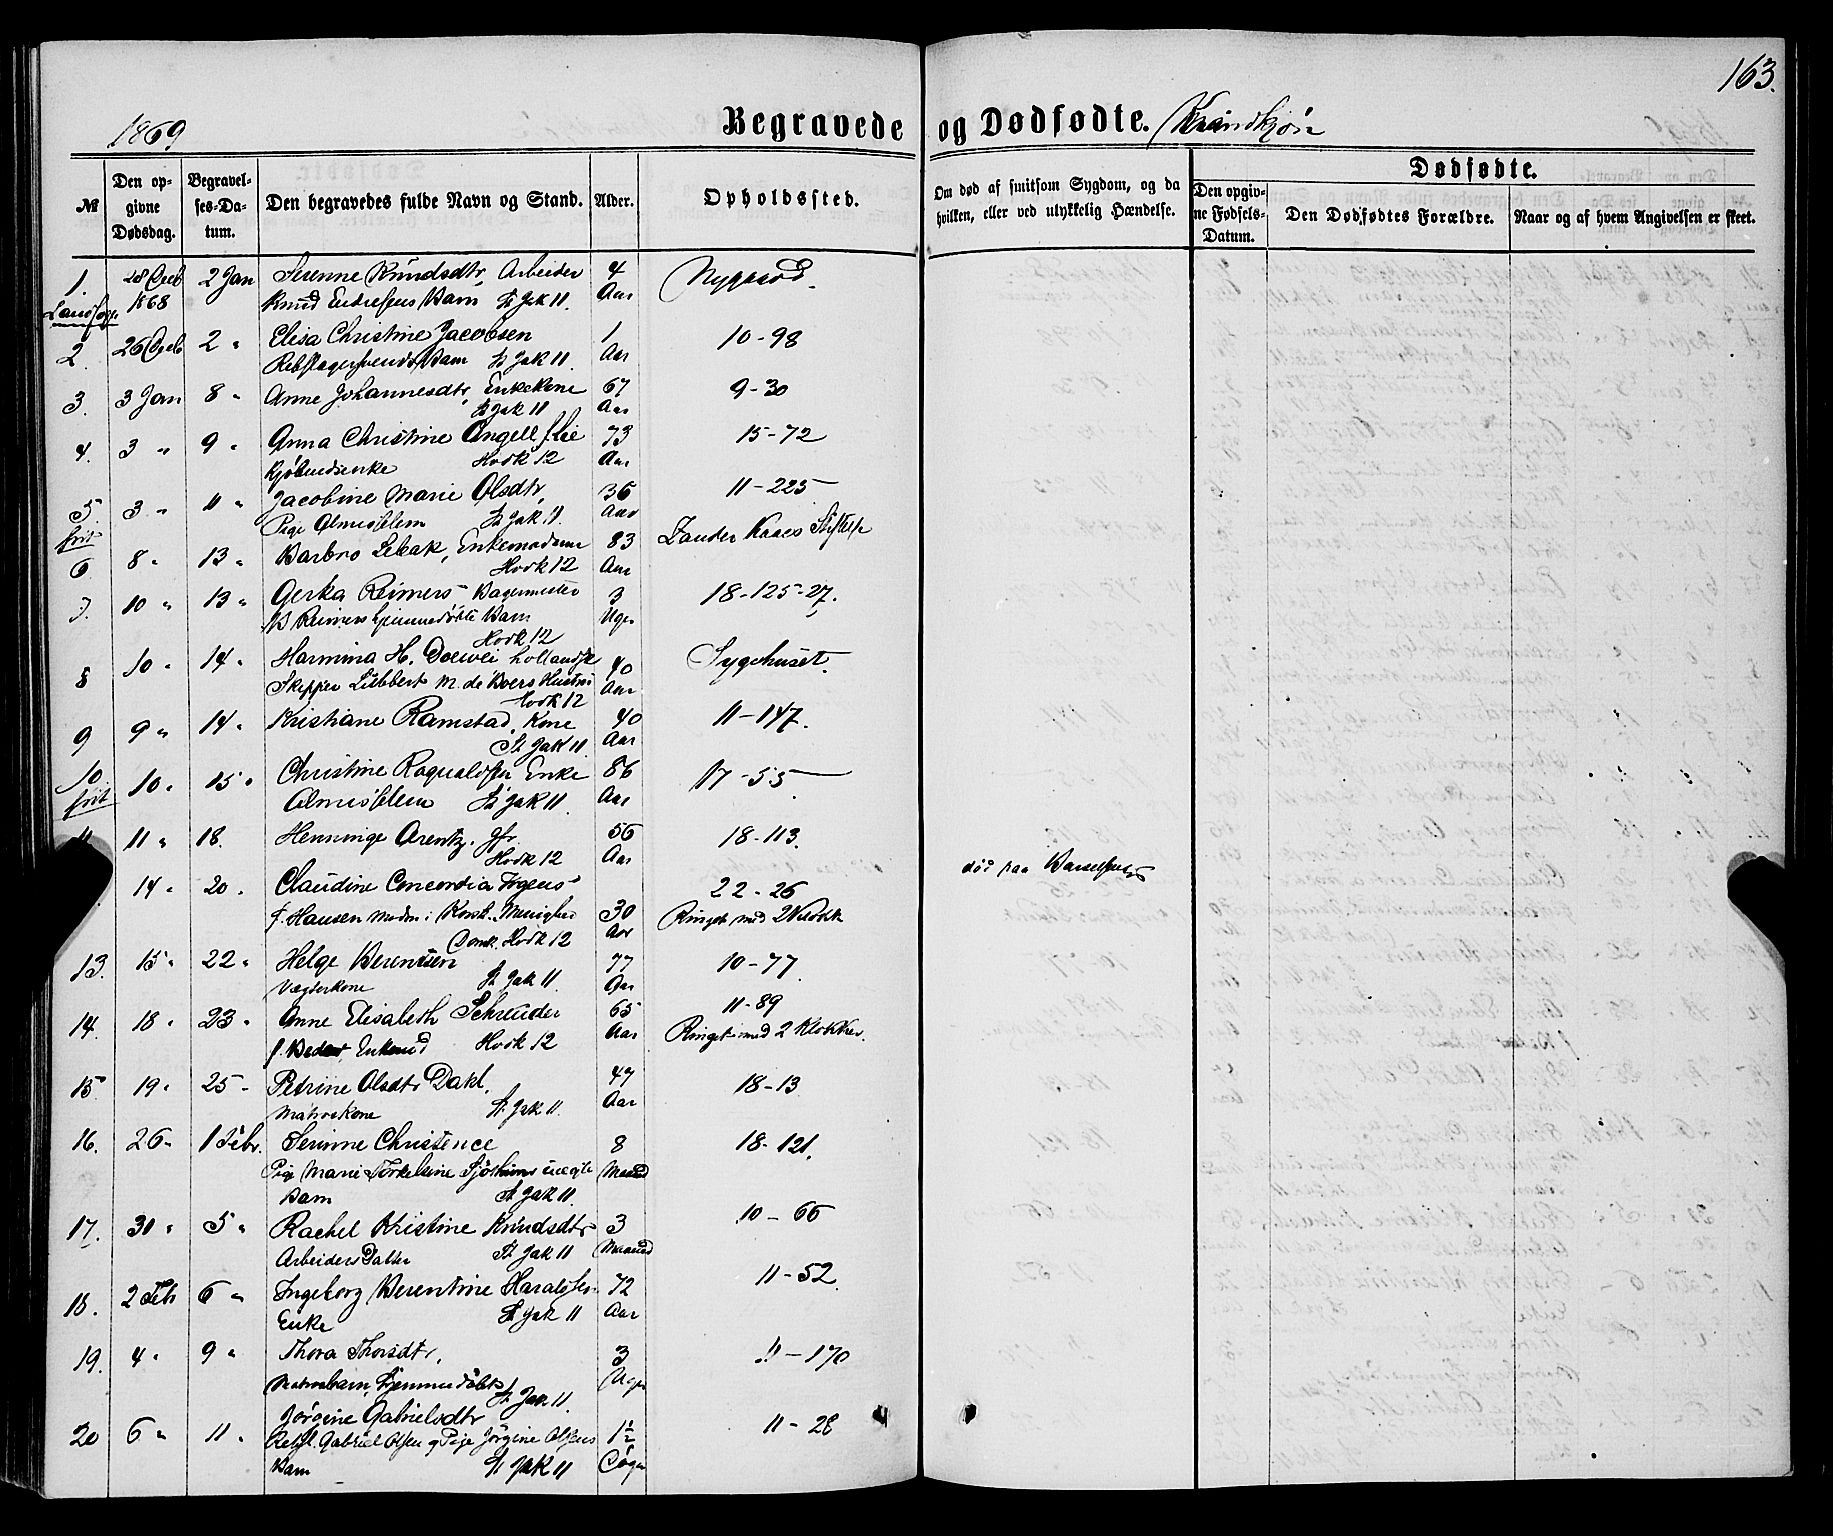 163.
1869 Begravede og Dødfødte. Kvindkjøn
№
Den opgivne Dødsdag.
Begravelses-Datum.
Den begravedes fulde Navn og Stand.
Alder.
Opholdssted.
Om død af smitsom Sygdom, og da hvilken, eller ved ulykkelig Hændelse.
Dødfødte.
Den opgivne Fødsels-Datum.
Den Dødfødtes Forældre.
Naar og af hvem Angivelsen er skeet.
1. 28 Decb 2 Jan Serenne Knudsdtr, Arbeider 4 Nygaard
1868 Knud Endresens Barn St Jak 11. Aar
2. 26 Decb 2 " Elisa Christine Jacobsen 1 10-98
Barn St Jak 11 Aar
3. 3 Jan 8 " Anne Johannesdtr, Enkekone 67 9-30
St Jak 11 Aar
4. 3 " 9 " Anna Christine Angell f. Lie 73 15-72
Kjøbmdsenke Hovk 12 Aar
5. 3 " 11 " Jacobine Marie Olsdtr, 36 11-225
frit Pige Almislem St Jak 11. Aar
6 8 " 13 " Barbro Lebak, Enkemadame 83 Zander Kaaes Stiftelse
Hovk 12 Aar
7. 10 " 13 " Gerka Reimers Bagermester 3 18-125-27.
Reimers hjemmedøbte Barn Uger
Hovk 12
8 10 " 14 " Harmina H. Doewei hollandsk 40 Sygehuset.
Skipper Lübbert M. de Boers Hustru Aar
Hovk 12
9 9 " 14 " Kristiane Ramstad, Kone 40 11-147.
St Jak 11 Aar
10 10 " 15 " Christine Rognaldsen Enke 86 17-55
frit Almislem St Jak 11. Aar
11 11 " 18. Henninge Arentz. Jfr. 56 18-113.
Hovk 12 Aar
14 " 20 " Claudine Concordia Irgens 22-26 død paa Barselseng
f. Hansen Madm i Korsk. Menighed 30 Ringet med 2 Klokk
Domk. Hovk 12 Aar
13. 15 " 22 " Helge Berentsen 77 10-77
Vægterkone St Jak 11 Aar
14. 18 " 23 " Anne Elisabeth Schreuder 65 11-89
Hovk 12 Aar Ringet med 2 Klokker.
15 19 " 25 " Petrine Olsdtr Dahl. 47 18-13
Matroskone St Jak 11. Aar
16. 26 " 1 Febr. Serinne Christence 8 18-121.
Pige Marie Torkelsine uægte Maaned
Barn St Jak 11
17. 30 " 5 " Rachel Kristine Knudsdtr 3 10-66
Arbeiders Datter St Jak 11 Maaned
18. 2 Febr 6 " Ingeborg Berentine Haraldsen 72 11-52
Enke St Jak 11 Aar
19. 4 " 9 " Thora Thorsdtr. 3 11-170
Matrosbarn, hjemmedøbt St Jak 11. Uger
20 6 " 11 " Jørgine Gabrielsdtr 1½ 11-28
Gabriel Olsen og Pige Jørgine Olsens
Barn St Jak 11